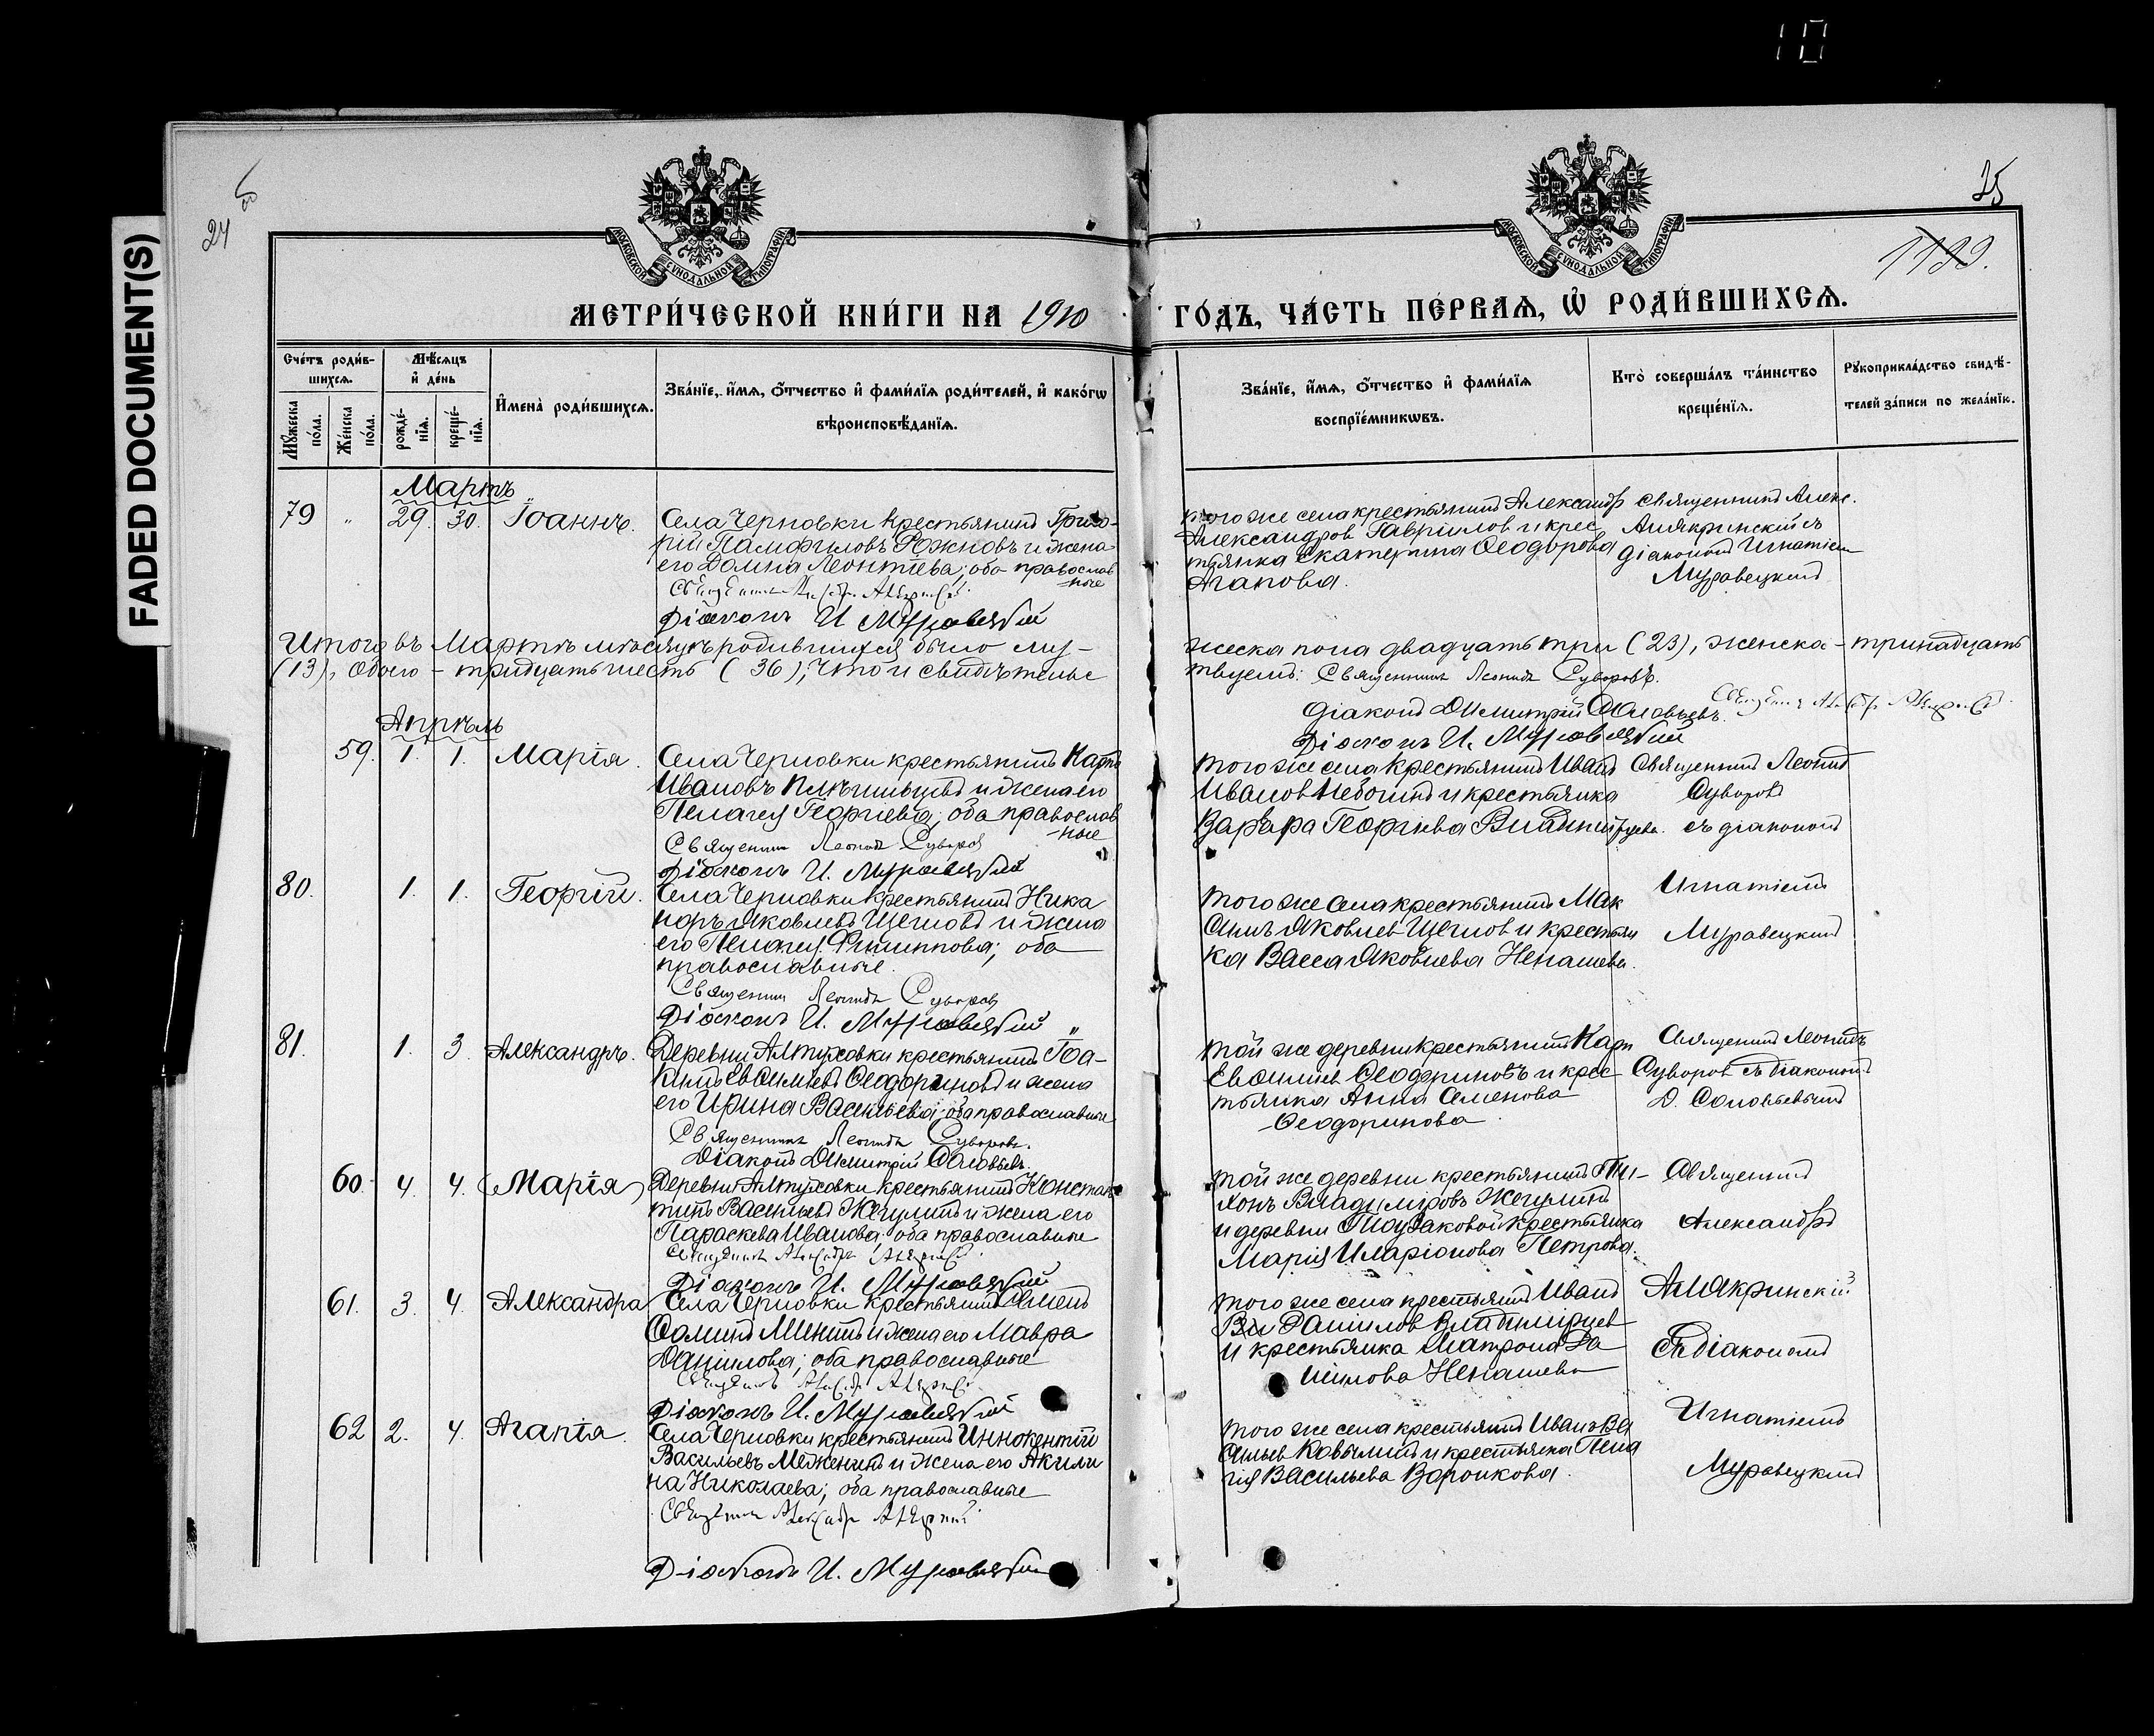 10
FADED DOCUMENT(S)
24 об
25
МОСКОВСКОЙ СѴНОДАЛЬНОЙ ТИПОГРАФІИ
МОСКОВСКОЙ СѴНОДАЛЬНОЙ ТИПОГРАФІИ
1199.
МЕТРИ́ЧЕСКОЙ КНИ́ГИ НА 1910 ГО́ДЪ, ЧА́СТЬ ПЕ́РВАѦ, Ѡ҆ РОДИ́ВШИХСѦ.
Сче́тъ роди́в-
шихсѧ.
Мꙋ́жеска по́ла.
Же́нска по́ла.
Мѣ́сѧцъ
и҆ де́нь
рожде́-
нїѧ.
креще́-
нїѧ.
И҆мена̀ роди́вшихсѧ.
Зва́нїе, и҆́мѧ, ѻ҆́тчество и҆ фами́лїѧ роди́телей, и҆ како́гѡ
вѣроисповѣ́данїѧ.
Зва́нїе, и҆́мѧ, ѻ҆́тчество и҆ фами́лїѧ
воспрїе́мникѡвъ.
Кто̀ соверша́лъ та́инство
креще́нїѧ.
Рꙋкоприкла́дство свидѣ́-
телей за́писи по жела́нїю.
Мартъ
79 " 29. 30. Іоаннъ.
Села Черновки крестьянинъ Григо-
рій Памфиловъ Рожновъ и жена
его Домна Леонтіева; оба православ
ные
Діаконъ И. Муравецкій
того же села крестьянинъ Александр
Александров Гаврилов и крес
тьянка Екатерина Ѳеодорова
Агапова.
Священникъ Алекс.
Аллякринскій съ
діакономъ Игнатіем
Муравецкимъ
Итого въ Мартѣ мѣсяцѣ родившихся было му-
жеска пола двадцать три (23), женска - тринадцать
(13), обоего - тридцать шесть (36), что и свидѣтельс
твуемъ: Священникъ Леонидъ Суворовъ.
Діаконъ Димитрій Соловьевъ.
Діаконъ И. Муравецкій
Апрѣль
59. 1. 1. Марія.
Села Черновки крестьянинъ Карпъ
Ивановъ и жена его
Пелагея Георгіева; оба православ
ные
Священникъ Леонидъ Суворов
Діаконъ И. Муравецкій
того же села крестьянинъ Иванъ
Иванов и крестьянка
Варвара Георгіева
Священникъ Леонид
Суворовъ
съ діакономъ
80. 1. 1. Георгій.
Села Черновки крестьянинъ Ника
норъ Яковлевъ Щегловъ и жена
его Пелагея Филиппова; оба
православные.
Священник Леонидъ Суворов
Діаконъ И. Муравецкій
того же села крестьянинъ Мак
симъ Яковлев Щеглов и крестьян
ка Васса Яковлева Ненашева.
Игнатіемъ
Муравецкимъ
81. 1. 3. Александръ.
Деревни Алтуховки крестьянинъ Іоа-
кимъ Евѳиміевъ Ѳеодориновъ и жена
его Ирина Васильева; оба православные
Священникъ Леонидъ Суворовъ.
Діаконъ Димитрій Соловьевъ.
той же деревни крестьянинъ Карп
Евѳиміев Ѳеодориновъ и крес
тьянка Анна Семенова
Ѳеодоринова
Священникъ Леонидъ
Суворов съ діакономъ
Д. Соловьевымъ
60. 4. 4. Марія
Деревни Алтуховки крестьянинъ Констан
тинъ Васильевъ Жегулинъ и жена его
Параскева Иванова; оба православные
Діаконъ И. Муравецкій
той же деревни крестьянинъ Ти-
хонъ Владиміровъ Жегулинъ
и деревни крестьянка
Марія Иларіонова Петрова.
Священникъ
Александръ
61. 3. 4. Александра
Села Черновки крестьянинъ Семенъ
Ѳоминъ и жена его Мавра
Даніилова; оба православные
Діаконъ И. Муравецкій
того же села крестьянинъ Иванъ
Даніилов
и крестьянка Матрона Да
ніилова Ненашева
Аллякринскій
Съ діакономъ
62 2. 4. Агапія.
Села Черновки крестьянинъ Иннокентій
Васильевъ и жена его Акили
на Николаева; оба православные
Діаконъ И. Муравецкій
того же села крестьянинъ Иванъ Ва
сильев и крестьянка Пела
гея Васильева Воронкова.
Игнатіемъ
Муравецкимъ